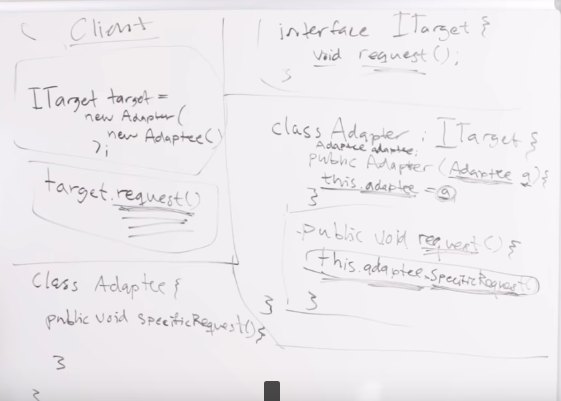 Client
ITarget target =
new Adapter(
new Adaptee()
);
target.request()
class Adaptee {
public void specificRequest() {
}
}
interface ITarget {
void request();
}
class Adapter : ITarget {
Adaptee adaptee;
public Adapter (Adaptee a) {
this.adaptee = a
}
public void request() {
this.adaptee.specificRequest()
}
}